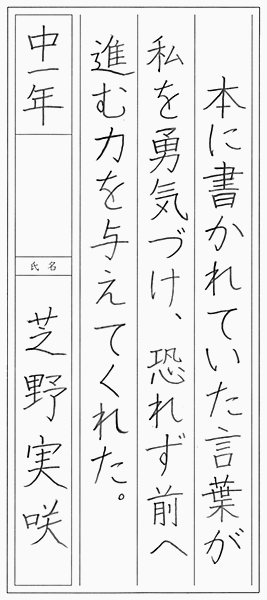 本に書かれていた言葉が
私を勇気づけ、恐れず前へ
進む力を与えてくれた。
中一年
氏名
芝野実咲